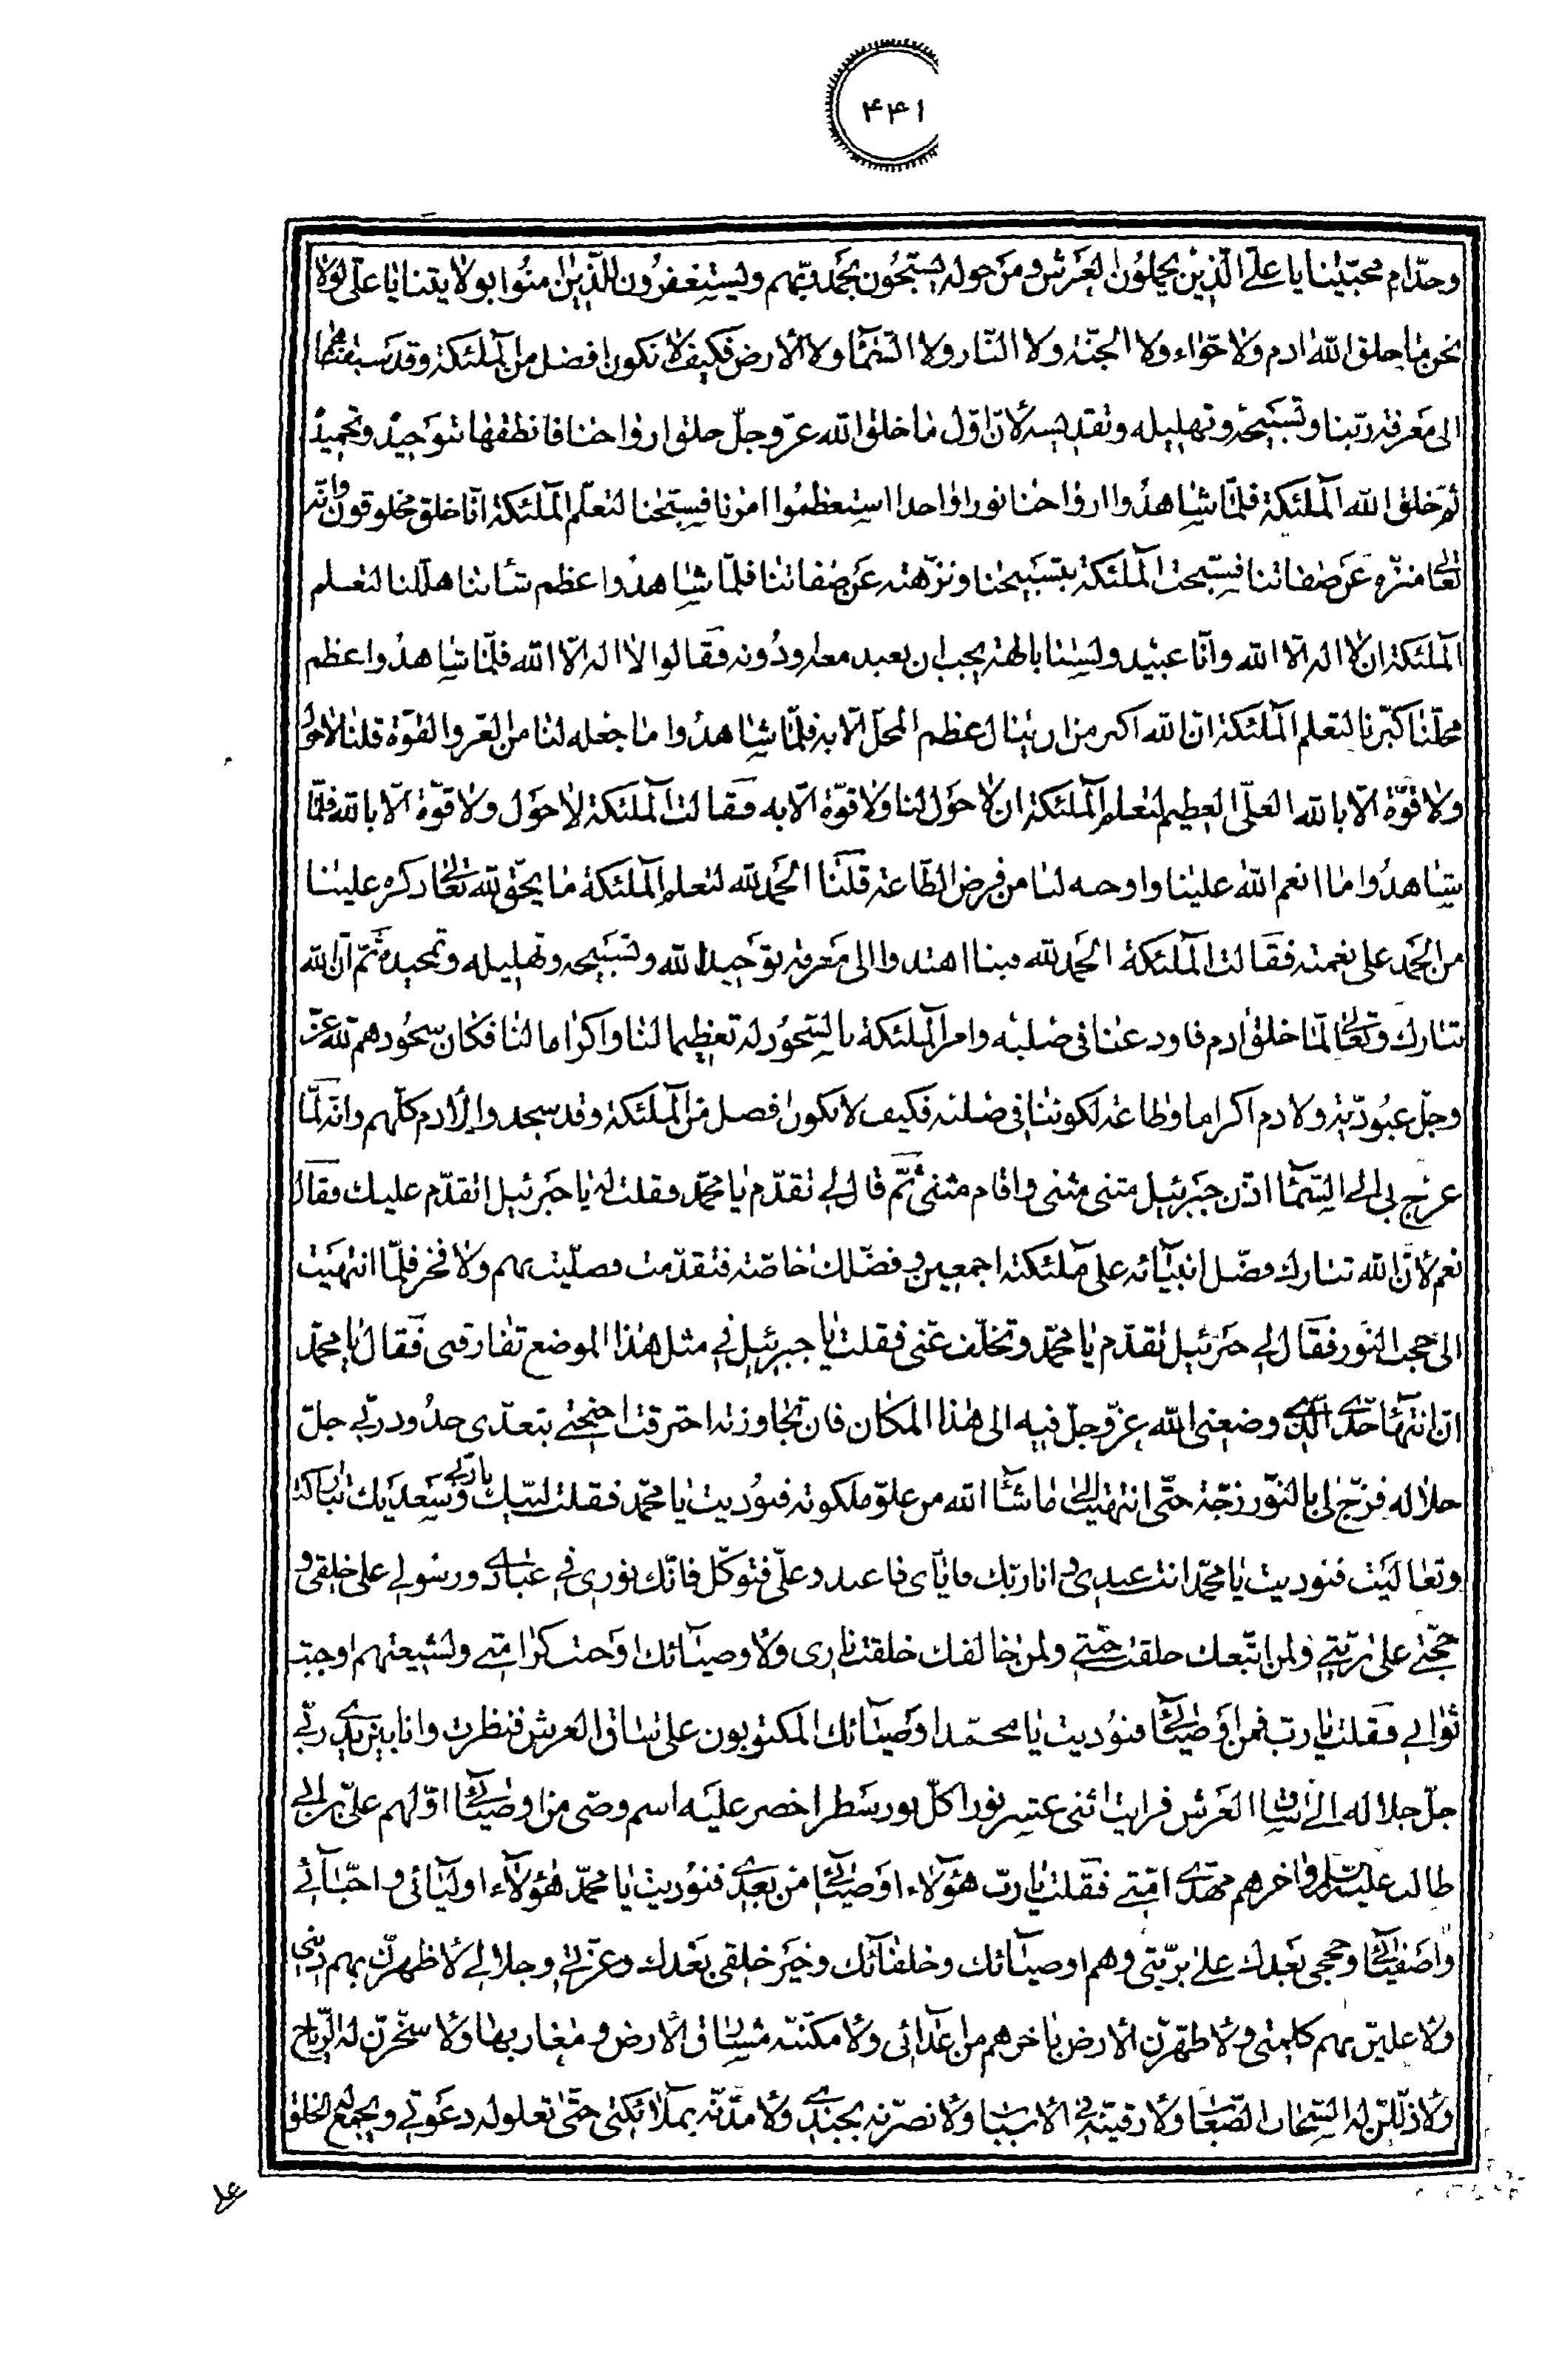 ۴۴۱
وخدّام محبّينا يا علىّ الّذين يحملون العرش ومن حوله يسبّحون بحمد ربّهم ويستغفرون للّذين امنوا بولايتنا يا علىّ لولا
نحن ما خلق الله ادم ولا حوّاء ولا الجنّة ولا النّار ولا السّمآء ولا الارض فكيف لا نكون افضل من الملئكة وقد سبقناهم
الى معرفة ربّنا وتسبيحه وتهليله وتقديسه لانّ اوّل ما خلق الله عزّ وجلّ خلق ارواحنا فانطقها بتوحيده وتحميده
ثمّ خلق الله الملئكة فلمّا شاهدوا ارواحنا نورا واحدا استعظموا امرنا فسبّحنا لتعلم الملئكة انّا خلق مخلوقون وانّه
تعالى منزّه عن صفاتنا فسبّحت الملئكة بتسبيحنا ونزّهته عن صفاتنا فلمّا شاهدوا عظم شأننا هلّلنا لتعلم
الملئكة ان لا اله الّا الله وانّا عبيد ولسنا بالهة يجب ان نعبد معه او دونه فقالوا لا اله الّا الله فلمّا شاهدوا عظم
محلّنا كبّرنا لتعلم الملئكة انّ الله اكبر من ان ينال عظم المحلّ الّا به فلمّا شاهدوا ما جعله لنا من العزّ والقوّة قلنا لا حول
ولا قوّة الّا بالله العلىّ العظيم لتعلم الملئكة ان لا حول لنا ولا قوّة الّا به فقالت الملئكة لا حول ولا قوّة الّا بالله فلمّا
شاهدوا ما انعم الله علينا واوجبه لنا من فرض الطّاعة قلنا الحمد لله لتعلم الملئكة ما يحقّ لله تعالى ذكره علينا
من الحمد على نعمته فقالت الملئكة الحمد لله فبنا اهتدوا الى معرفة توحيد الله وتسبيحه وتهليله وتمجيده ثمّ انّ الله
تبارك وتعالى لمّا خلق ادم فاودعنا فى صلبه وامر الملئكة بالسّجود له تعظيما لنا واكراما لنا فكان سجودهم لله عزّ
وجلّ عبوديّة ولادم اكراما وطاعة لكوننا فى صلبه فكيف لا نكون افضل من الملئكة وقد سجدوا لادم كلّهم وانّه لمّا
عرج بى الى السّمآء اذّن جبرئيل مثنى مثنى واقام مثنى ثمّ قال لى تقدّم يا محمّد فقلت له يا جبرئيل اتقدّم عليك فقال
نعم لانّ الله تبارك فضّل انبيآئه على ملئكته اجمعين وفضّلك خاصّة فتقدّمت فصلّيت بهم ولا فخر فلمّا انتهيت
الى حجب النّور فقال لى جبرئيل تقدّم يا محمّد وتخلّف عنّى فقلت يا جبرئيل فى مثل هذا الموضع تفارقنى فقال يا محمّد
انّ انتهآء حدّى الّذى وضعنى الله عزّ وجلّ فيه الى هذا المكان فان تجاوزته احترقت اجنحتى بتعدّى حدود ربّى جلّ
جلاله فزجّ لى بالنّور زجّة حتّى انتهيت الى ما شآء الله من علوّ ملكوته فنوديت يا محمّد فقلت لبّيك يا ربّى وسعديك تباركت
وتعاليت فنوديت يا محمّد انت عبدى وانا ربّك فايّاى فاعبد وعلىّ فتوكّل فانّك نورى فى عبادى ورسولى على خلقى و
حجّتى على بريّتى ولمن اتّبعك خلقت جنّتى ولمن خالفك خلقت نارى ولاوصيآئك اوجبت كرامتى ولشيعتهم اوجبت
ثوابى فقلت يا ربّ فمن اوصيآئى فنوديت يا محمّد اوصيآئك المكتوبون على ساق العرش فنظرت وانا بين يدى ربّى
جلّ جلاله الى ساق العرش فرايت اثنى عشر نورا كلّ نور سطرا خضر عليه اسم وصىّ من اوصيآئى اوّلهم علىّ بن ابى
طالب عليه السّلم واخرهم مهدى امّتى فقلت يا ربّ هؤلآء اوصيآئى من بعدى فنوديت يا محمّد هؤلآء اوليآئى واحبّآئى
واصفيآئى وحججى بعدك على بريّتى وهم اوصيآئك وخلفآئك وخير خلقى بعدك وعزّتى وجلالى لاظهرنّ بهم دينى
ولاعلينّ بهم كلمتى ولاطهّرنّ الارض باخرهم من اعدائى ولامكّننّه مشارق الارض ومغاربها ولاسخّرنّ له الرّياح
ولاذلّلنّ له السّحاب الصّعاب ولارقينّه فى الاسباب ولانصرنّه بجندى ولامدّنّه بملائكتى حتّى تعلو له دعوتى ويجمع الخلق
على